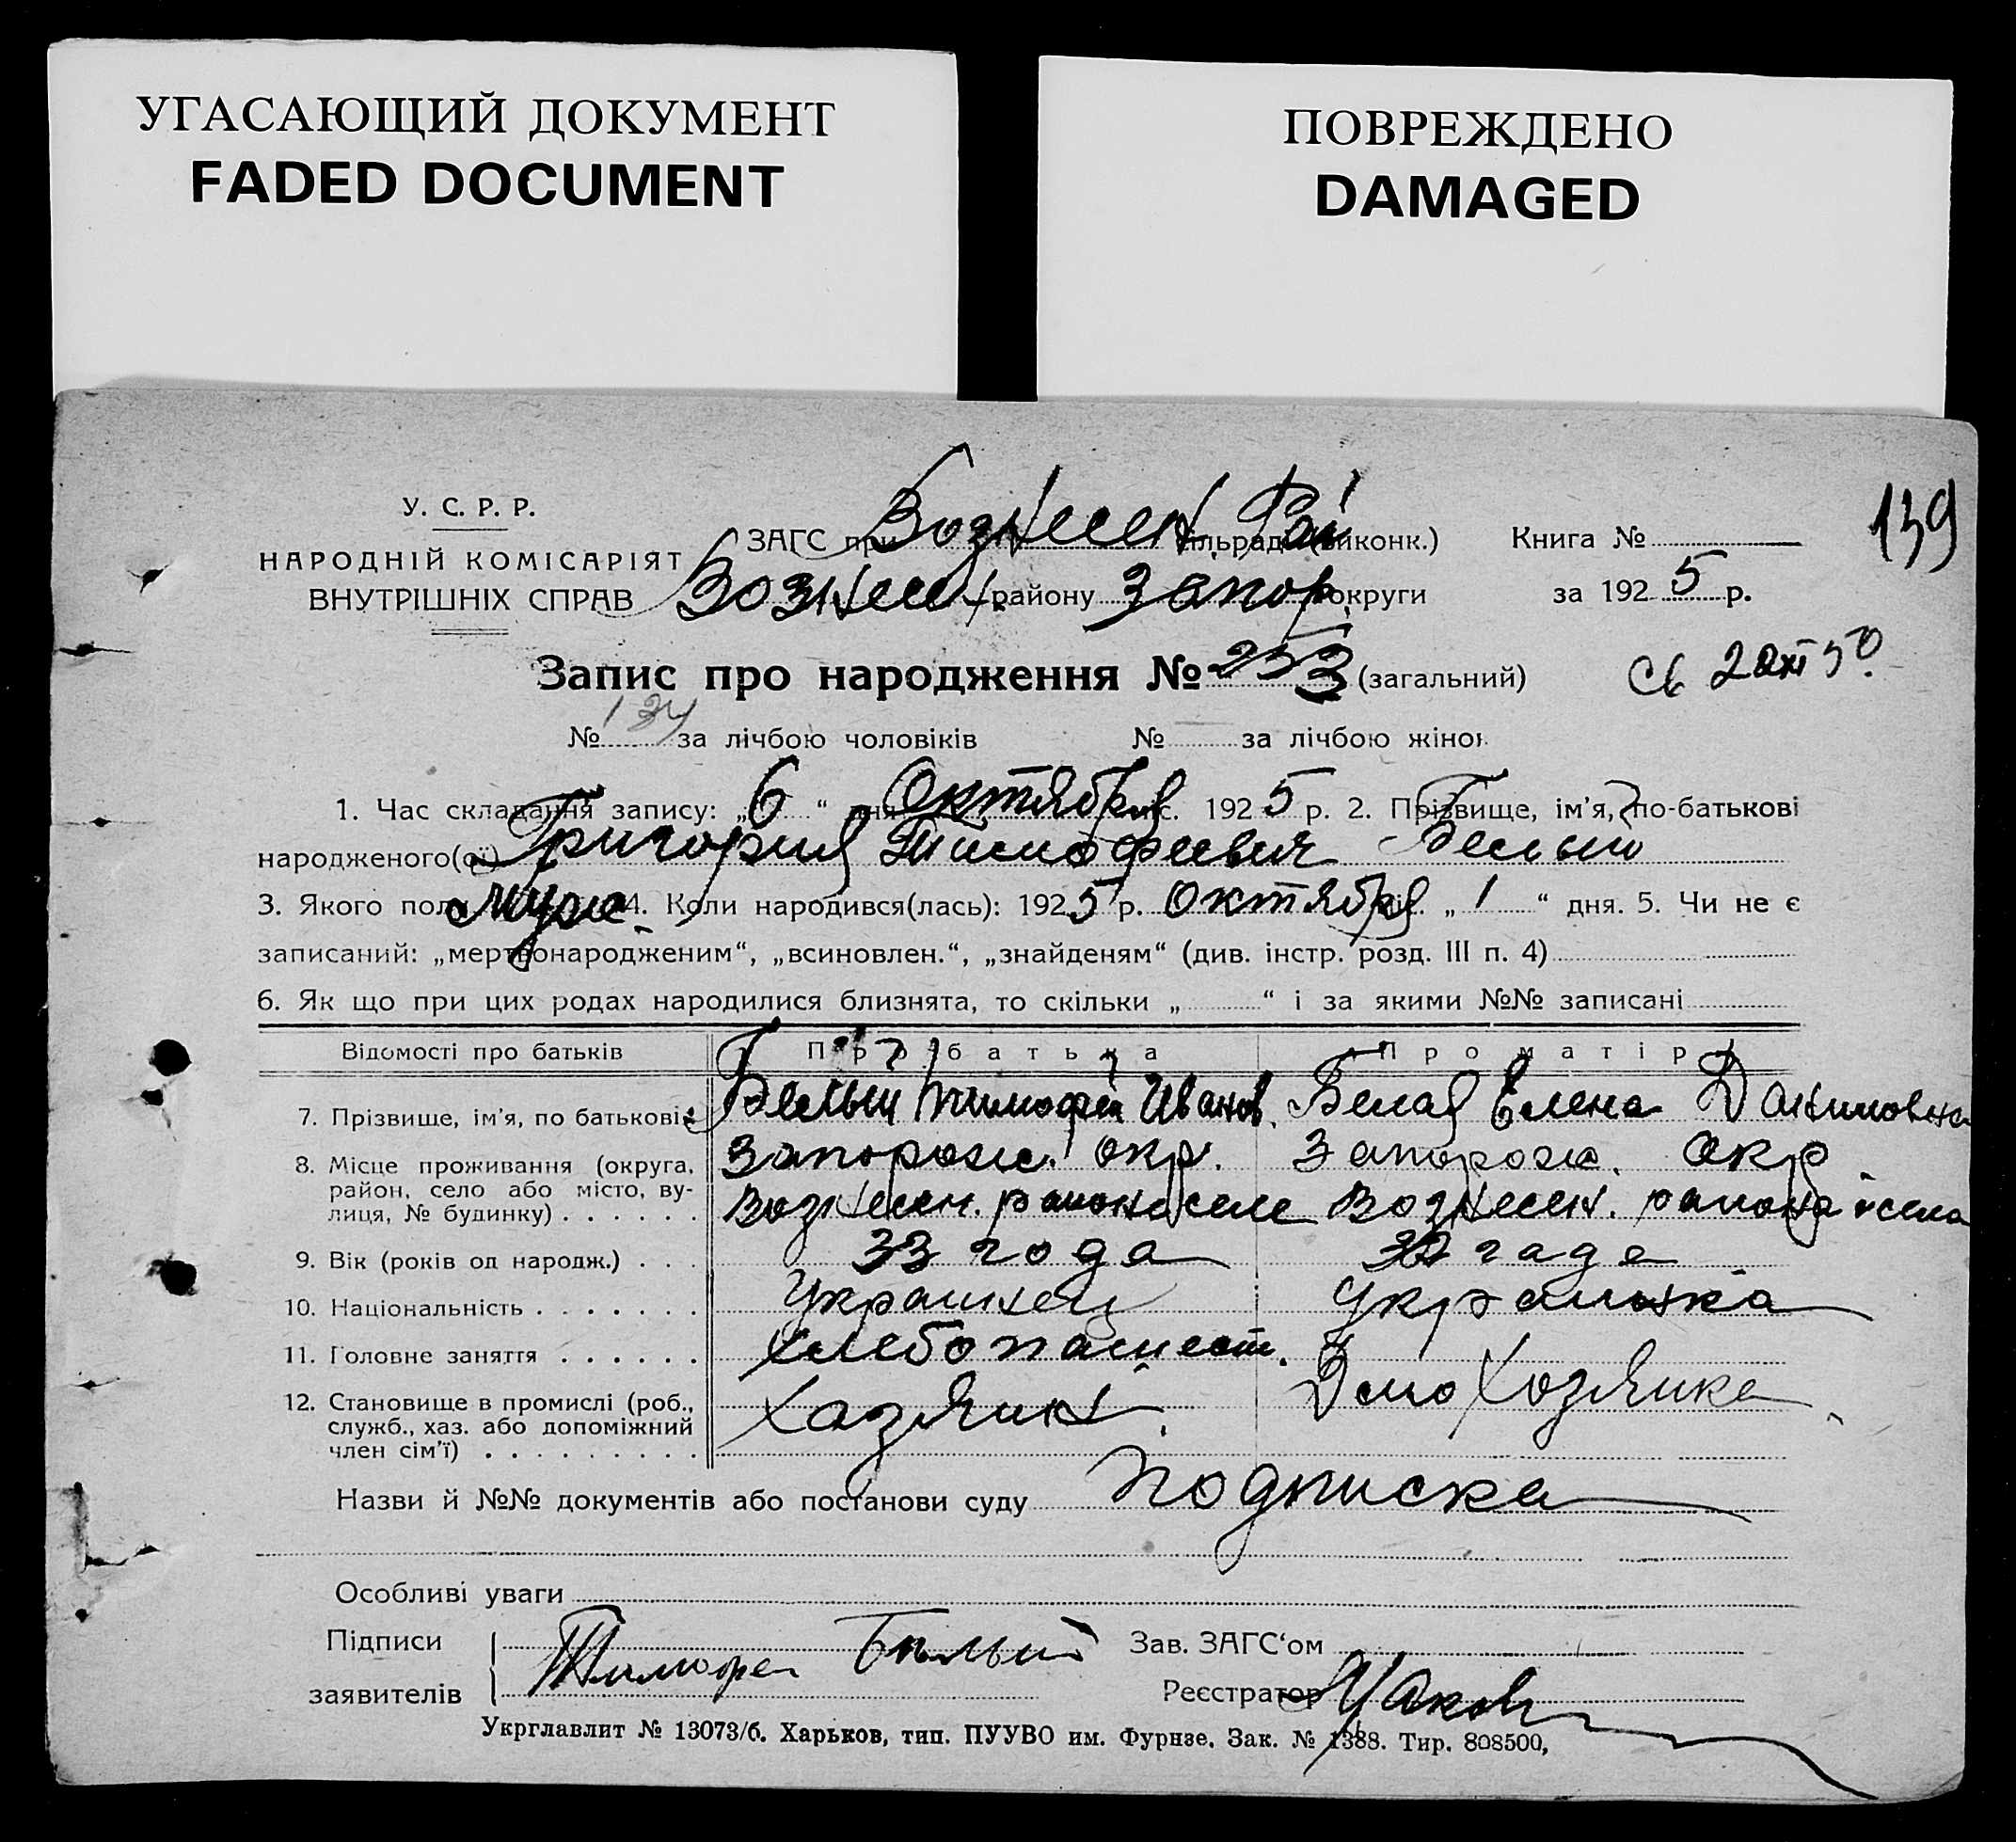 УГАСАЮЩИЙ ДОКУМЕНТ
FADED DOCUMENT
ПОВРЕЖДЕНО
DAMAGED
139
У. С. Р. Р.
НАРОДНІЙ КОМІСАРІЯТ
ВНУТРІШНІХ СПРАВ
ЗАГС при Вознесен. Рай сільради (виконк.) Книга №
Вознесен. району Запор. округи за 1925 р.
Запис про народження № 253 (загальний)
Св 2 50
№ 134 за лічбою чоловіків № за лічбою жінок
1. Час складання запису: „6“ дня Октября міс. 1925 р. 2. Прізвище, ім'я, по-батькові
народженого(ої) Григорий Тимофеевич Белый
3. Якого полу муж. 4. Коли народився(лась): 1925 р. Октября міс. „1“ дня. 5. Чи не є
записаний: „мертвонародженим“, „всиновлен.“, „знайденям“ (див. інстр. розд. III п. 4)
6. Як що при цих родах народилися близнята, то скільки „ “ і за якими №№ записані
Відомості про батьків Про батька Про матір
7. Прізвище, ім'я, по батькові Белый Тимофей Иванов. Белая Елена Данииловна
8. Місце проживання (округа, район, село або місто, вулиця, № будинку) Запорож. окр. Запорож. окр.
Вознесен. района села Вознесен. района села
9. Вік (років од народж.) 33 года 32 года
10. Національність Украинец Украинка
11. Головне заняття Хлебопашест.
12. Становище в промислі (роб., служб., хаз. або допоміжний член сім'ї) Хазяин. Домохозяйка
Назви й №№ документів або постанови суду подписка
Особливі уваги
Підписи Тимофей Белый Зав. ЗАГС'ом
заявителів Реєстратор
Укрглавлит № 13073/б. Харьков, тип. ПУУВО им. Фурнзе. Зак. № 1388. Тир. 808500,